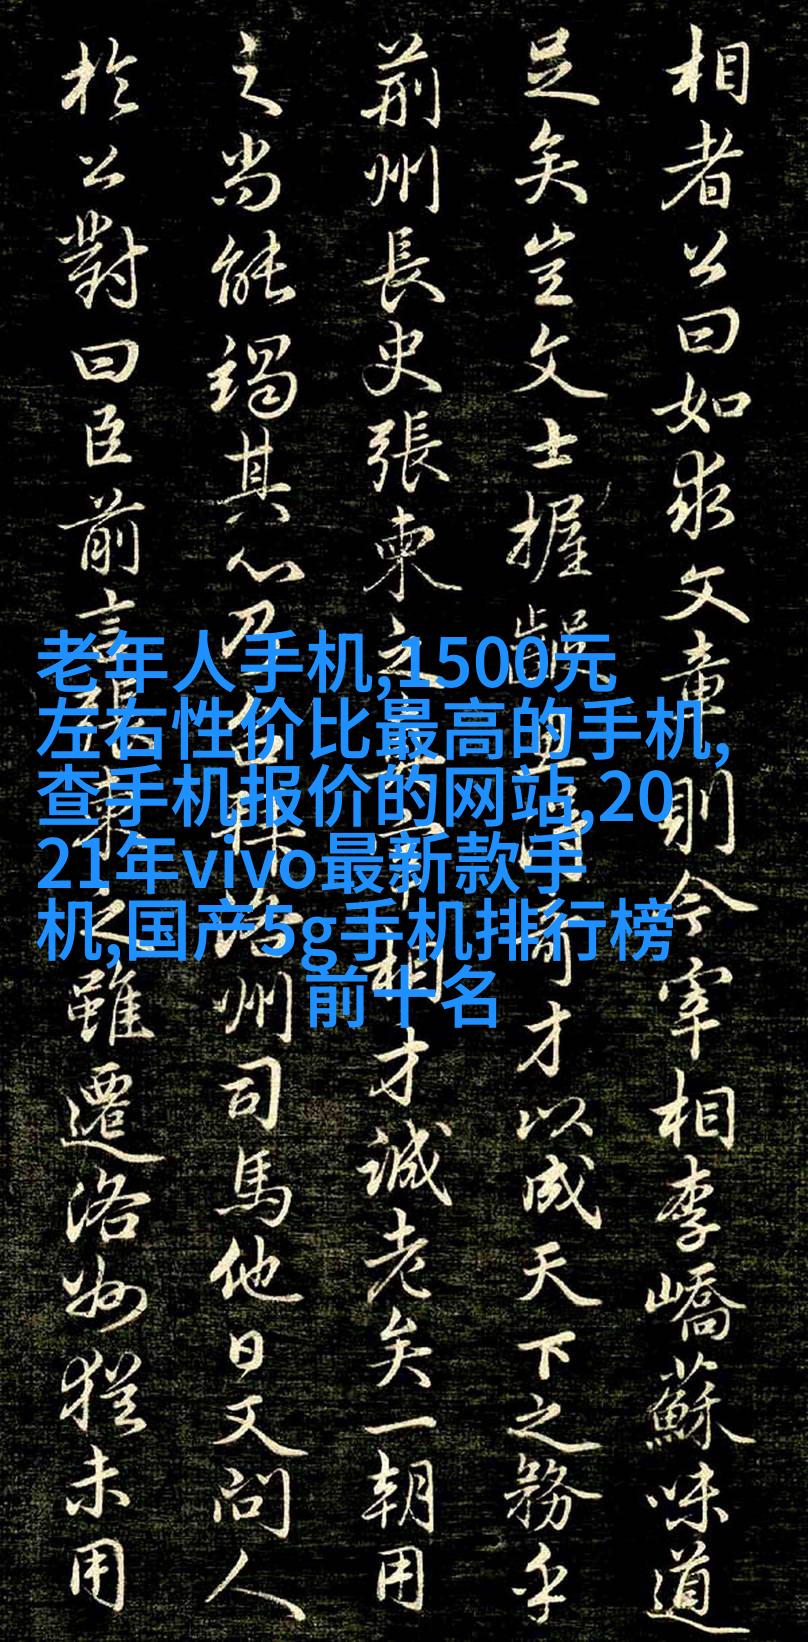 相者公曰如求文章則今宰相李嶠蘇味道
足矣豈文士握齪思得奇才以成天下之務乎
荊州長史張柬之真宰相才誠老矣一朝用
之尚能竭其心乃召拜洛州司馬他日又問人
於公對曰臣前言張柬之雖遷洛州猶未用
老年人手机,1500元
左右性价比最高的手机,
查手机报价的网站,20
21年vivo最新款手
机,国产5g手机排行榜
前十名